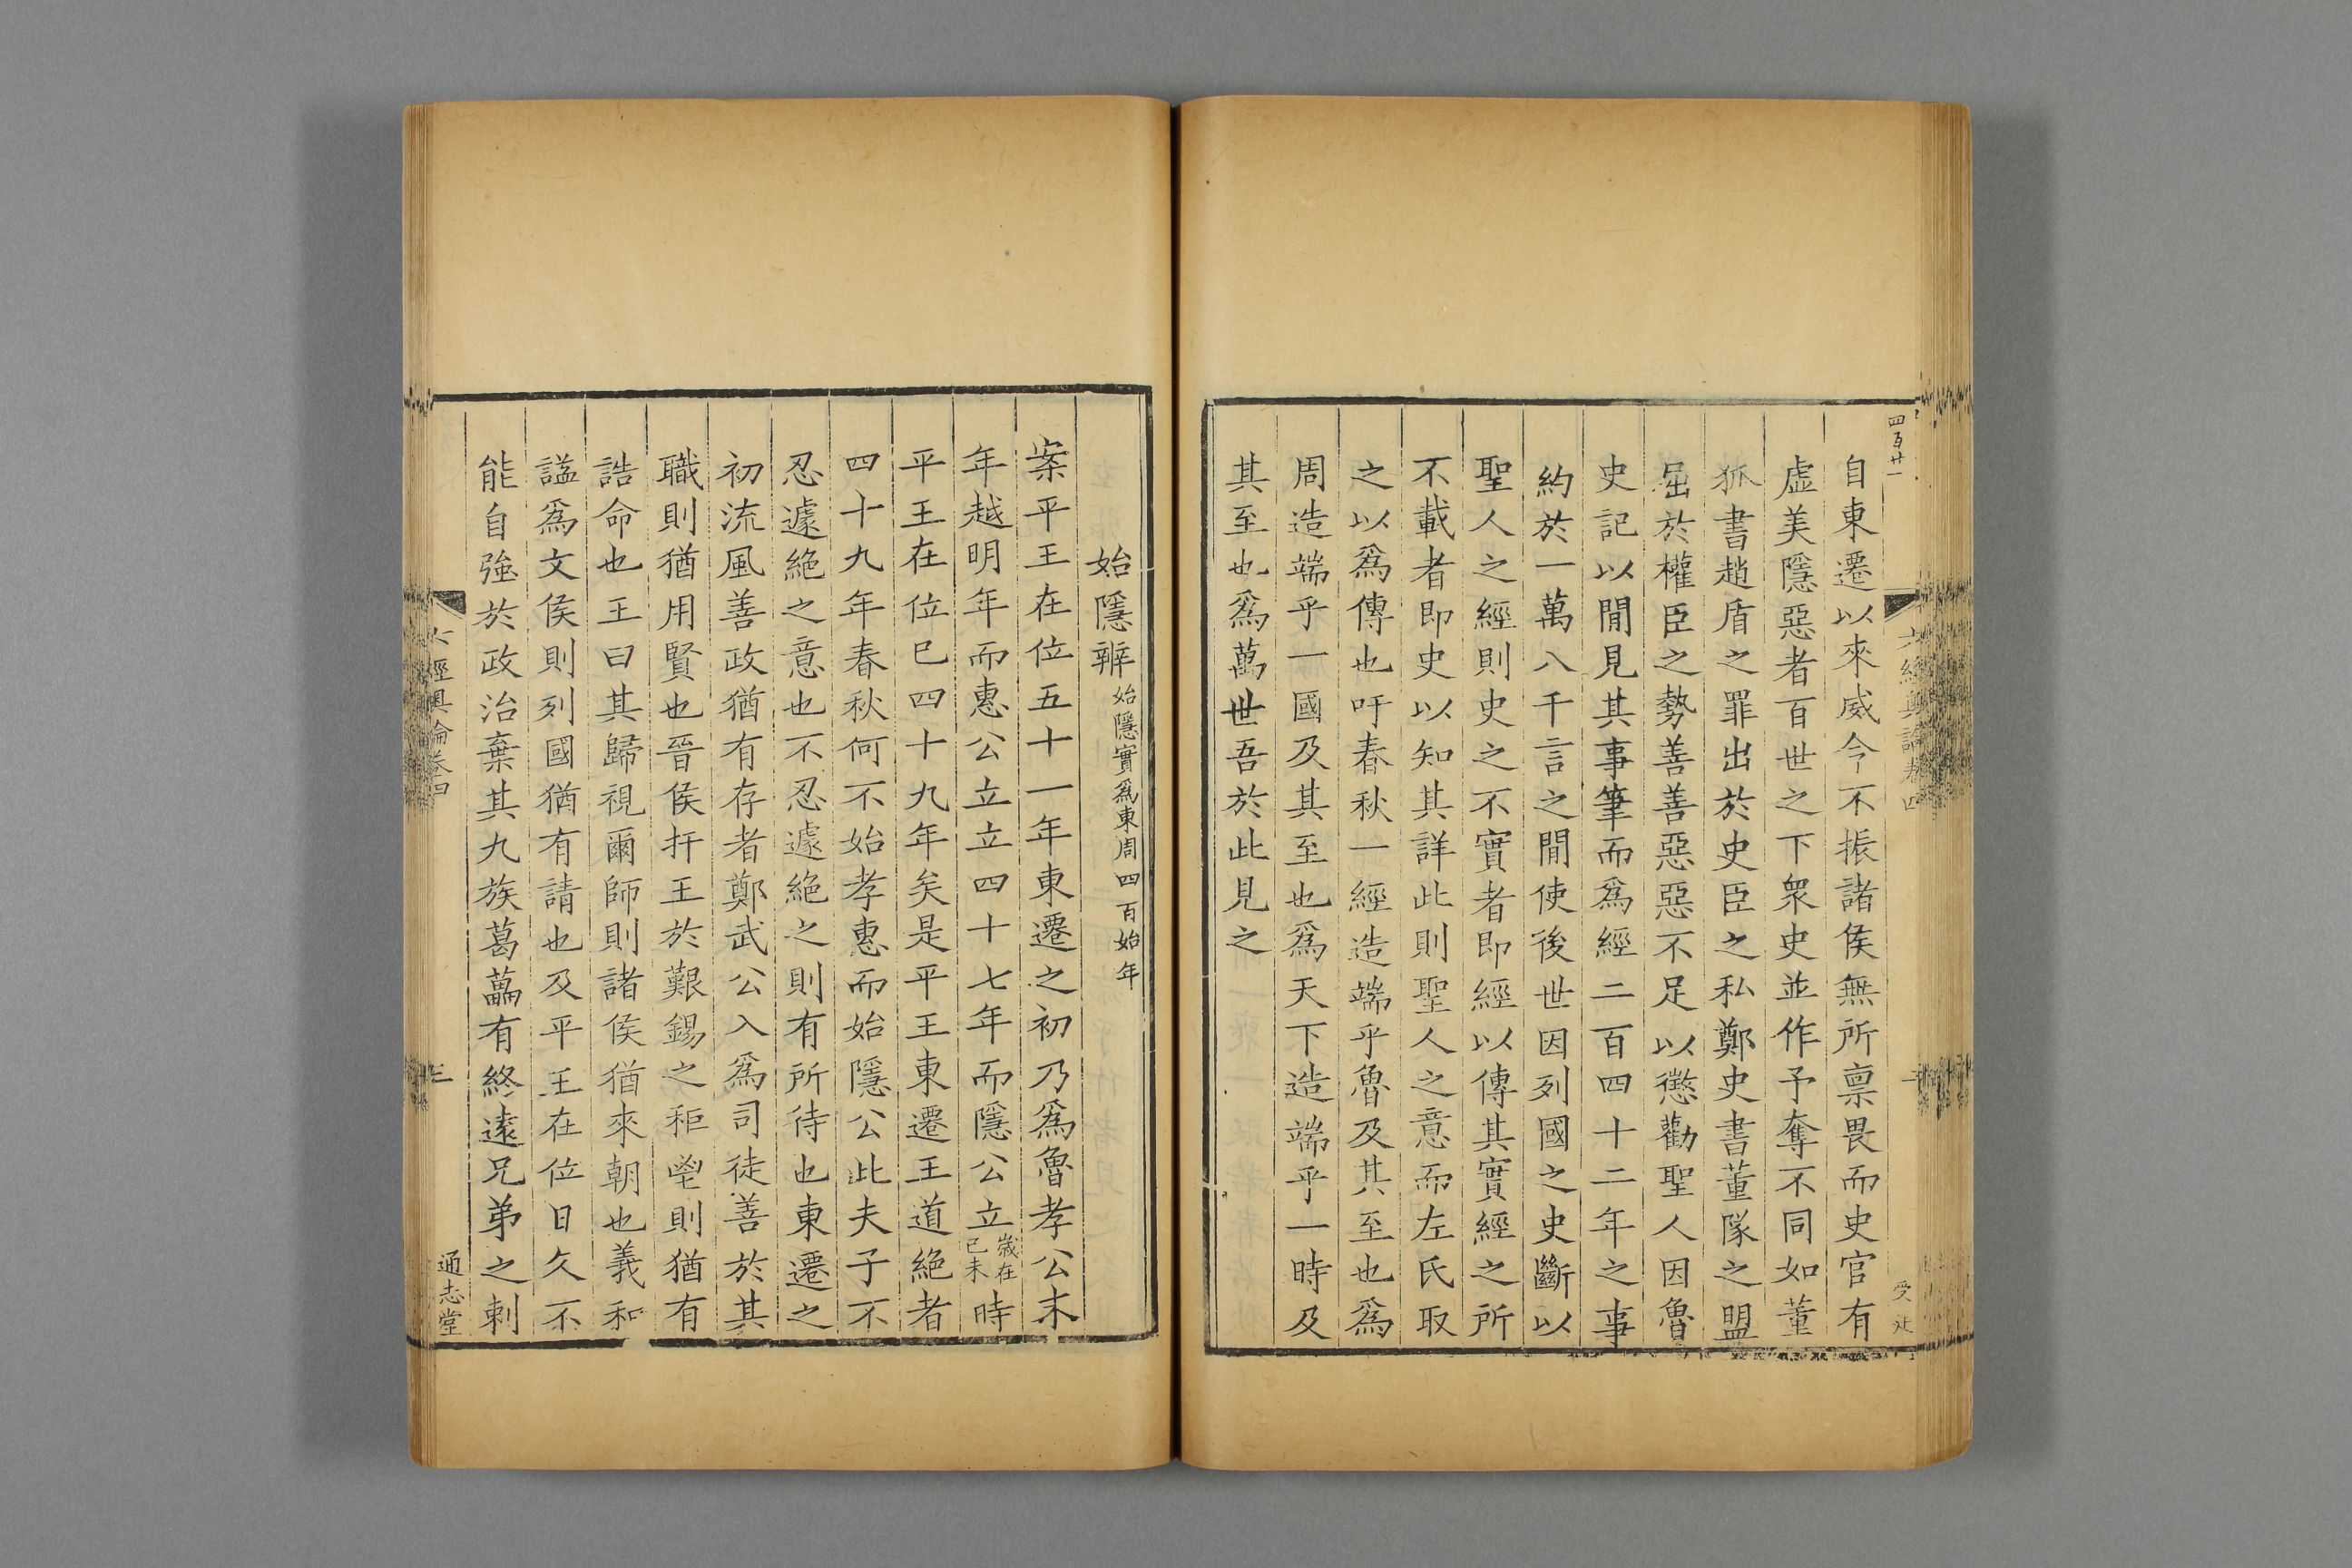 四百廿一
六經奧論卷四
自東遷以來威令不振諸侯無所禀畏而史官有
虛美隱惡者百世之下衆史並作予奪不同如董
狐書趙盾之罪出於史臣之私鄭史書董隊之盟
屈於權臣之勢善善惡惡不足以懲勸聖人因魯
史記以閒見其事筆而爲經二百四十二年之事
約於一萬八千言之閒使後世因列國之史斷以
聖人之經則史之不實者即經以傳其實經之所
不載者即史以知其詳此則聖人之意而左氏取
之以爲傳也吁春秋一經造端乎魯及其至也爲
周造端乎一國及其至也爲天下造端乎一時及
其至也爲萬世吾於此見之
始隱辨始隱實爲東周四百始年
案平王在位五十一年東遷之初乃爲魯孝公末
年越明年而惠公立立四十七年而隱公立歲在己未時
平王在位巳四十九年矣是平王東遷王道絕者
四十九年春秋何不始孝惠而始隱公此夫子不
忍遽絕之意也不忍遽絕之則有所待也東遷之
初流風善政猶有存者鄭武公入爲司徒善於其
職則猶用賢也晉侯扞王於艱錫之秬鬯則猶有
誥命也王曰其歸視爾師則諸侯猶來朝也義和
謚爲文侯則列國猶有請也及平王在位日久不
能自強於政治棄其九族葛藟有終遠兄弟之刺
六經奧論卷四
通志堂